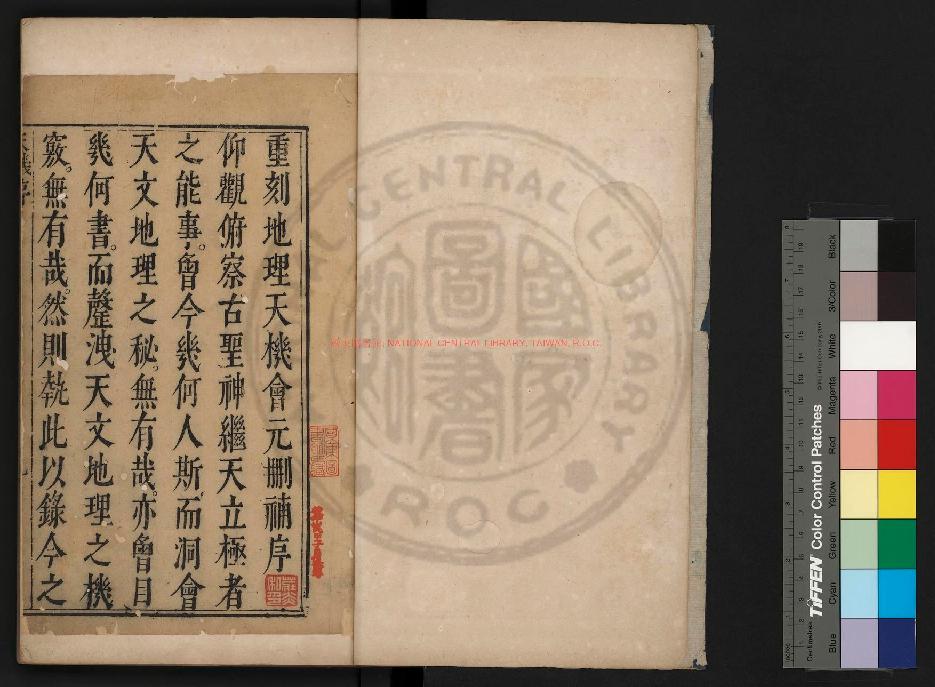 重刻地理天機會元刪補序
仰觀俯察古聖神繼天立極者
之能事。曾今幾何人斯而洞會
天文地理之秘。無有哉。亦曾目
幾何書。而罄洩天文地理之機
竅。無有哉。然則執此以錄今之
CENTRAL LIBRARY
ROC
國家圖書館
NATIONAL CENTRAL LIBRARY, TAIWAN, R.O.C.
TIFFEN Color Control Patches
Centimetres
Blue
Cyan
Green
Yellow
Red
Magenta
White
3/Color
Black